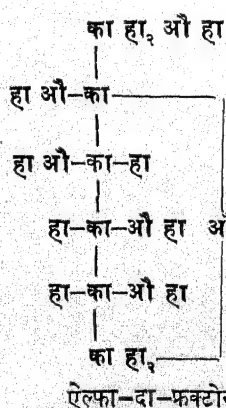 का हा₂ औ हा
हा औ-का
हा औ-का-हा
हा-का-औ हा
हा-का-औ हा
का हा₂
ऐल्फा-दा-फ्रक्टो